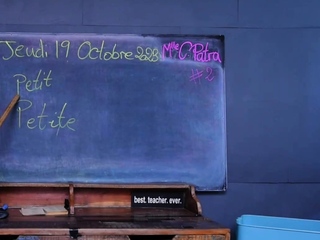 Jeudi 19 Octobre 2023 Mlle C Patra
#2
Petit
Petite
best. teacher. ever.